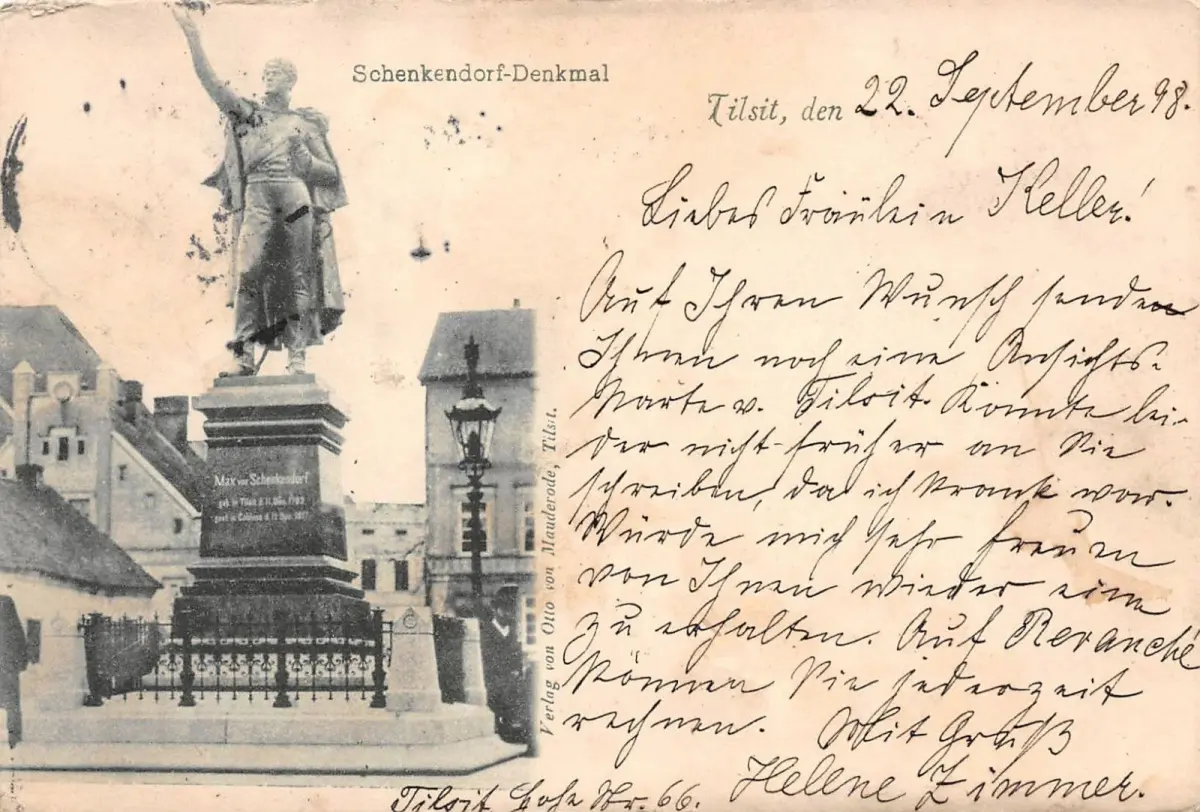 Schenkendorf-Denkmal
Tilsit, den 22. September 98.
Liebes Fräulein Keller!
Auf Ihren Wunsch sende
Ihnen noch eine Ansichts-
karte v. Tilsit. Konnte lei-
der nicht früher an Sie
schreiben, da ich krank war.
Würde mich sehr freuen
von Ihnen wieder eine
zu erhalten. Auf Revanche
können Sie jederzeit
rechnen. Mit Gruß
Helene Zimmer.
Tilsit Hohe Str. 66.
Max von Schenkendorf
geb. in Tilsit d. 11. Dez. 1783
gest. in Coblenz d. 11. Dez. 1817
Verlag von Otto von Mauderode, Tilsit.